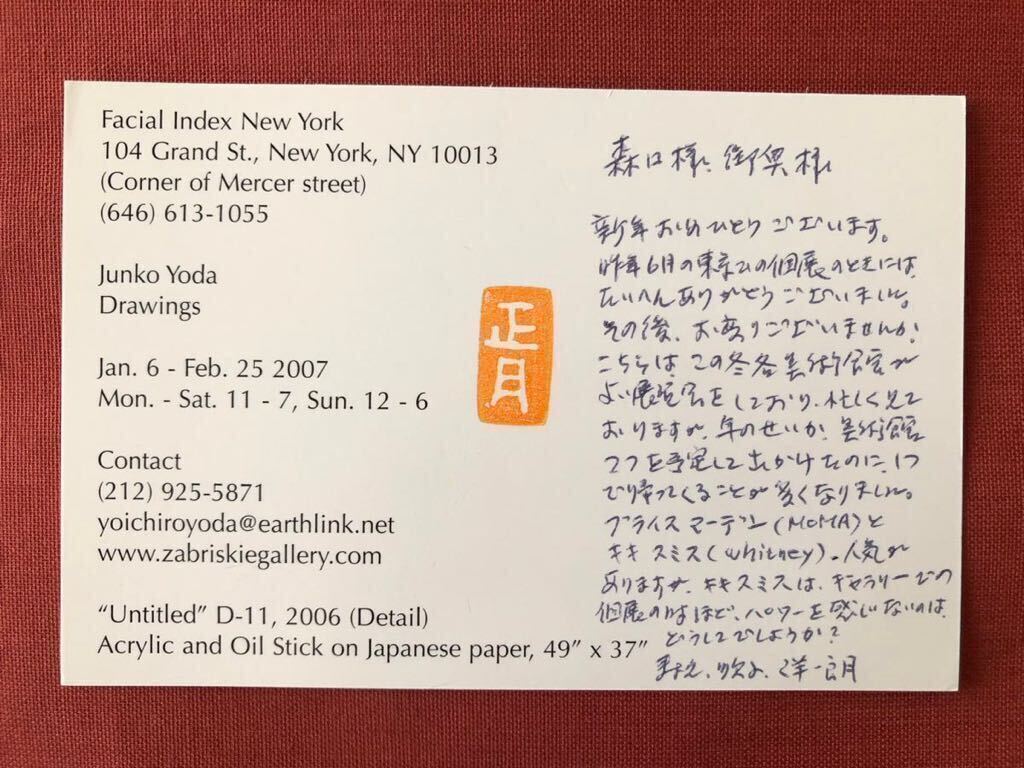 Facial Index New York
104 Grand St., New York, NY 10013
(Corner of Mercer street)
(646) 613-1055
Junko Yoda
Drawings
Jan. 6 - Feb. 25 2007
Mon. - Sat. 11 - 7, Sun. 12 - 6
Contact
(212) 925-5871
yoichiroyoda@earthlink.net
www.zabriskiegallery.com
“Untitled” D-11, 2006 (Detail)
Acrylic and Oil Stick on Japanese paper, 49” x 37”
正月
森口様、御奥様
新年おめでとうございます。
昨年6月の東京での個展のときには、
たいへんありがとうございました。
その後、お変りございませんか?
こちらは、この冬各美術館が
よい展覧会をしており、忙しく見て
おりますが、年のせいか、美術館
2つを予定して出かけたのに、1つ
で帰ってくることが多くなりました。
ブライスマーデン(MoMA)と
キキスミス(Whitney)、人気が
ありますが、キキスミスは、ギャラリーでの
個展の時ほど、パワーを感じないのは、
どうしてでしょうか?
洋一郎